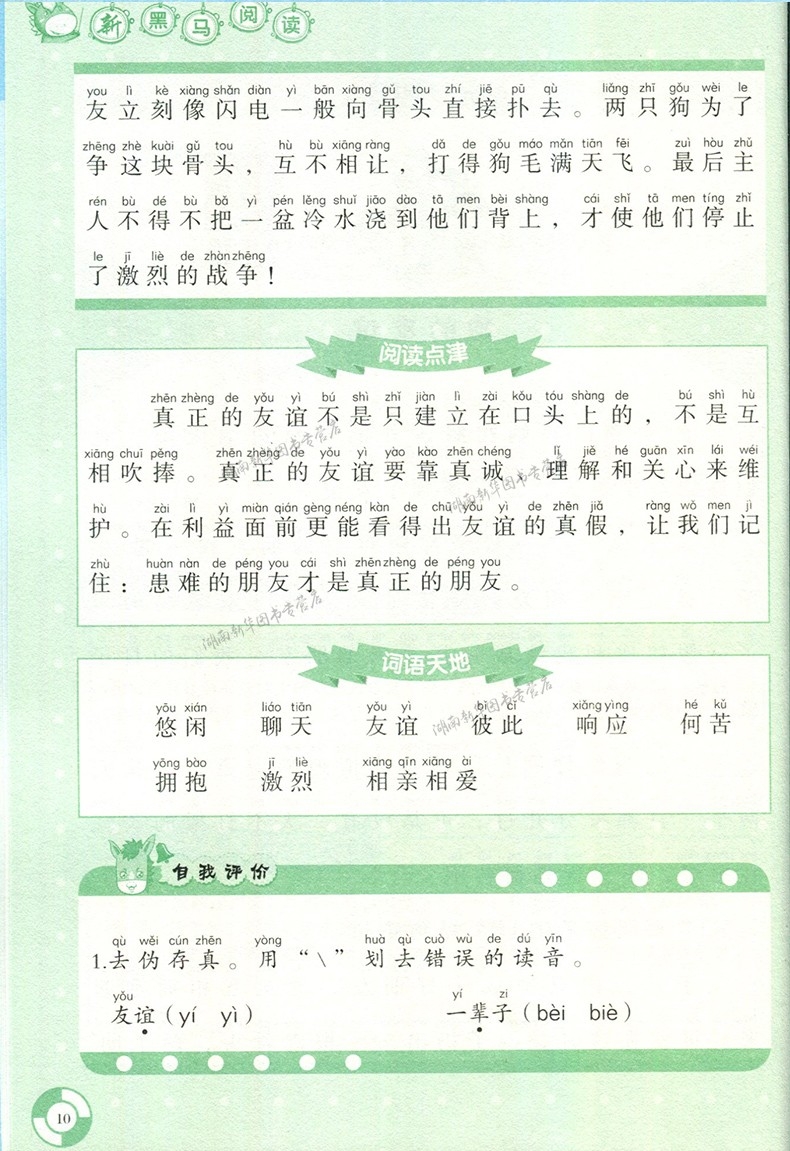 新黑马阅读
you lì kè xiàng shǎn diàn yì bān xiàng gǔ tou zhí jiē pū qù liǎng zhī gǒu wèi le
友立刻像闪电一般向骨头直接扑去。两只狗为了
zhēng zhè kuài gǔ tou hù bù xiāng ràng dǎ de gǒu máo mǎn tiān fēi zuì hòu zhǔ
争这块骨头，互不相让，打得狗毛满天飞。最后主
rén bù dé bù bǎ yì pén lěng shuǐ jiāo dào tā men bèi shàng cái shǐ tā men tíng zhǐ
人不得不把一盆冷水浇到他们背上，才使他们停止
le jī liè de zhàn zhēng
了激烈的战争！
阅读点津
zhēn zhèng de yǒu yì bú shì zhǐ jiàn lì zài kǒu tóu shang de bú shì hù
真正的友谊不是只建立在口头上的，不是互
xiāng chuī pěng zhēn zhèng de yǒu yì yào kào zhēn chéng lǐ jiě hé guān xīn lái wéi
相吹捧。真正的友谊要靠真诚、理解和关心来维
hù zài lì yì miàn qián gèng néng kàn de chū yǒu yì de zhēn jiǎ ràng wǒ men jì
护。在利益面前更能看得出友谊的真假，让我们记
zhù huàn nàn de péng you cái shì zhēn zhèng de péng you
住：患难的朋友才是真正的朋友。
湖南新华图书专营店
湖南新华图书专营店
湖南新华图书专营店
词语天地
yōu xián liáo tiān yǒu yì bǐ cǐ xiǎng yìng hé kǔ
悠闲 聊天 友谊 彼此 响应 何苦
湖南新华图书专营店
yōng bào jī liè xiāng qīn xiāng ài
拥抱 激烈 相亲相爱
自我评价
qù wěi cún zhēn yòng huà qù cuò wù de dú yīn
1.去伪存真。用“\”划去错误的读音。
yǒu yí zi
友谊（yí yì） 一辈子（bèi biè）
10